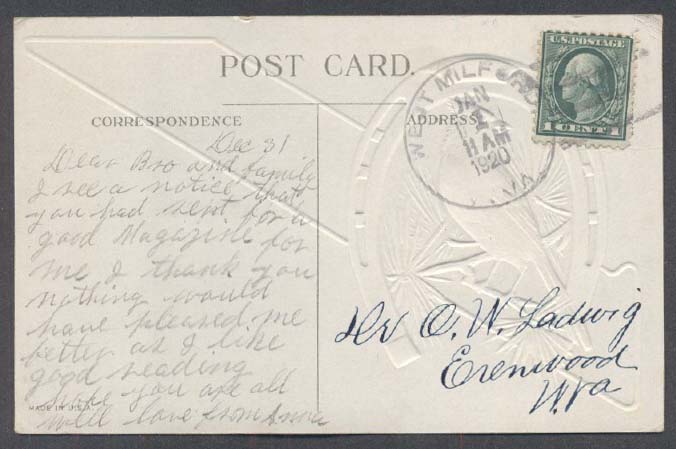 POST CARD.
CORRESPONDENCE
ADDRESS
U.S. POSTAGE
1 CENT 1
WEST MILFORD
W.VA.
JAN
1
11 AM
1920
Dec 31
Dear Bro and family
I see a notice that
you had sent for a
good Magazine for
me I thank you
nothing would
have pleased me
better as I like
good reading
hope you are all
well love from
MADE IN U.S.A.
Dr O. W. Ladwig
Erenwood
W.va